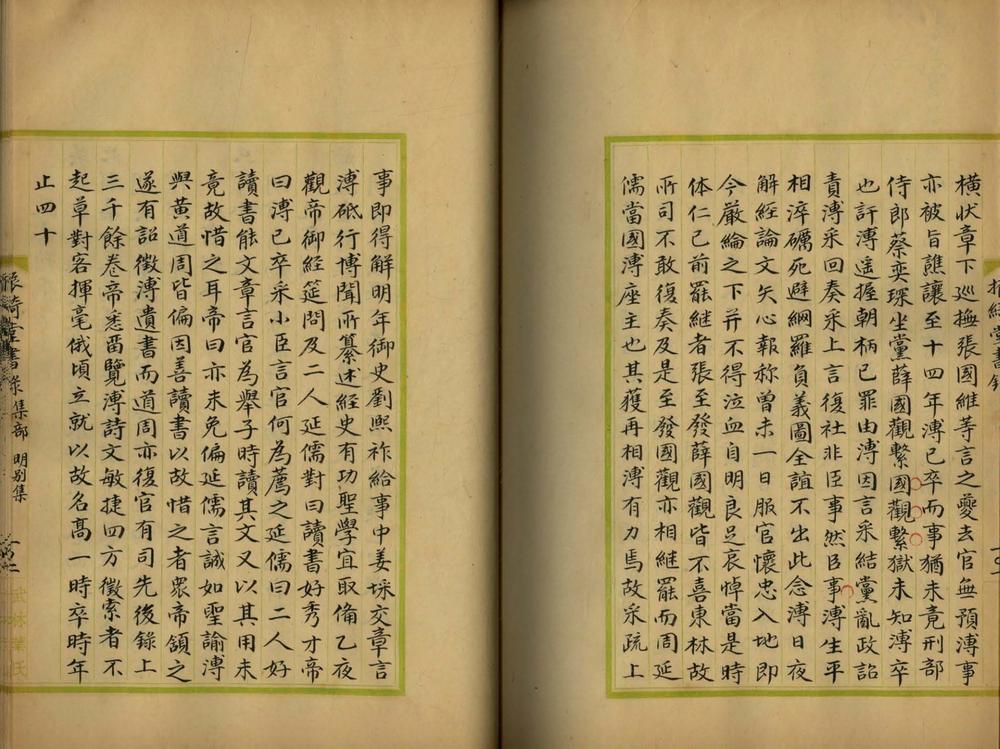 橫狀章下巡撫張國維等言之夔去官無預溥事
亦被旨譙讓至十四年溥已卒而事猶未竟刑部
侍郎蔡奕琛坐黨薛國觀繫國觀繫獄未知溥卒
也訐溥遥握朝柄已罪由溥因言采結黨亂政詔
責溥采回奏采上言復社非臣事然臣事溥生平
相淬礪死避網羅負義圖全誼不出此念溥日夜
解經論文矢心報称曾未一日服官懷忠入地即
今嚴綸之下并不得泣血自明良足哀悼當是時
体仁已前罷継者張至發薛國觀皆不喜東林故
所司不敢復奏及是至發國觀亦相継罷而周延
儒當國溥座主也其獲再相溥有力焉故采疏上
事即得解明年御史劉熙祚給事中姜埰交章言
溥砥行博聞所纂述經史有功聖學宜取俻乙夜
觀帝御經筵問及二人延儒對曰讀書好秀才帝
曰溥已卒采小臣言官何為薦之延儒曰二人好
讀書能文章言官為舉子時讀其文又以其用未
竟故惜之耳帝曰亦未免偏延儒言誠如聖諭溥
與黄道周皆偏因善讀書以故惜之者衆帝頷之
遂有詔徵溥遺書而道周亦復官有司先後錄上
三千餘卷帝悉畱覽溥詩文敏捷四方徵索者不
起草對客揮毫俄頃立就以故名髙一時卒時年
止四十
集部 明别集
武林葉氏